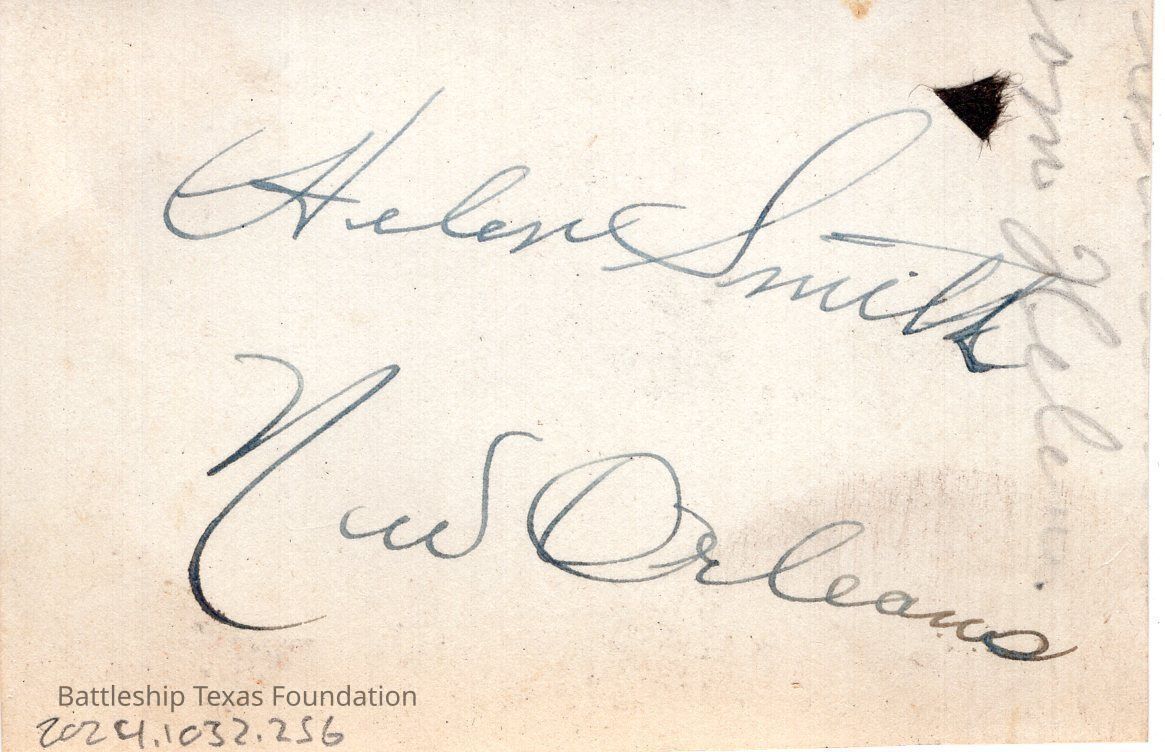 Helen Smith
New Orleans
Helen
Battleship Texas Foundation
2024.1032.256